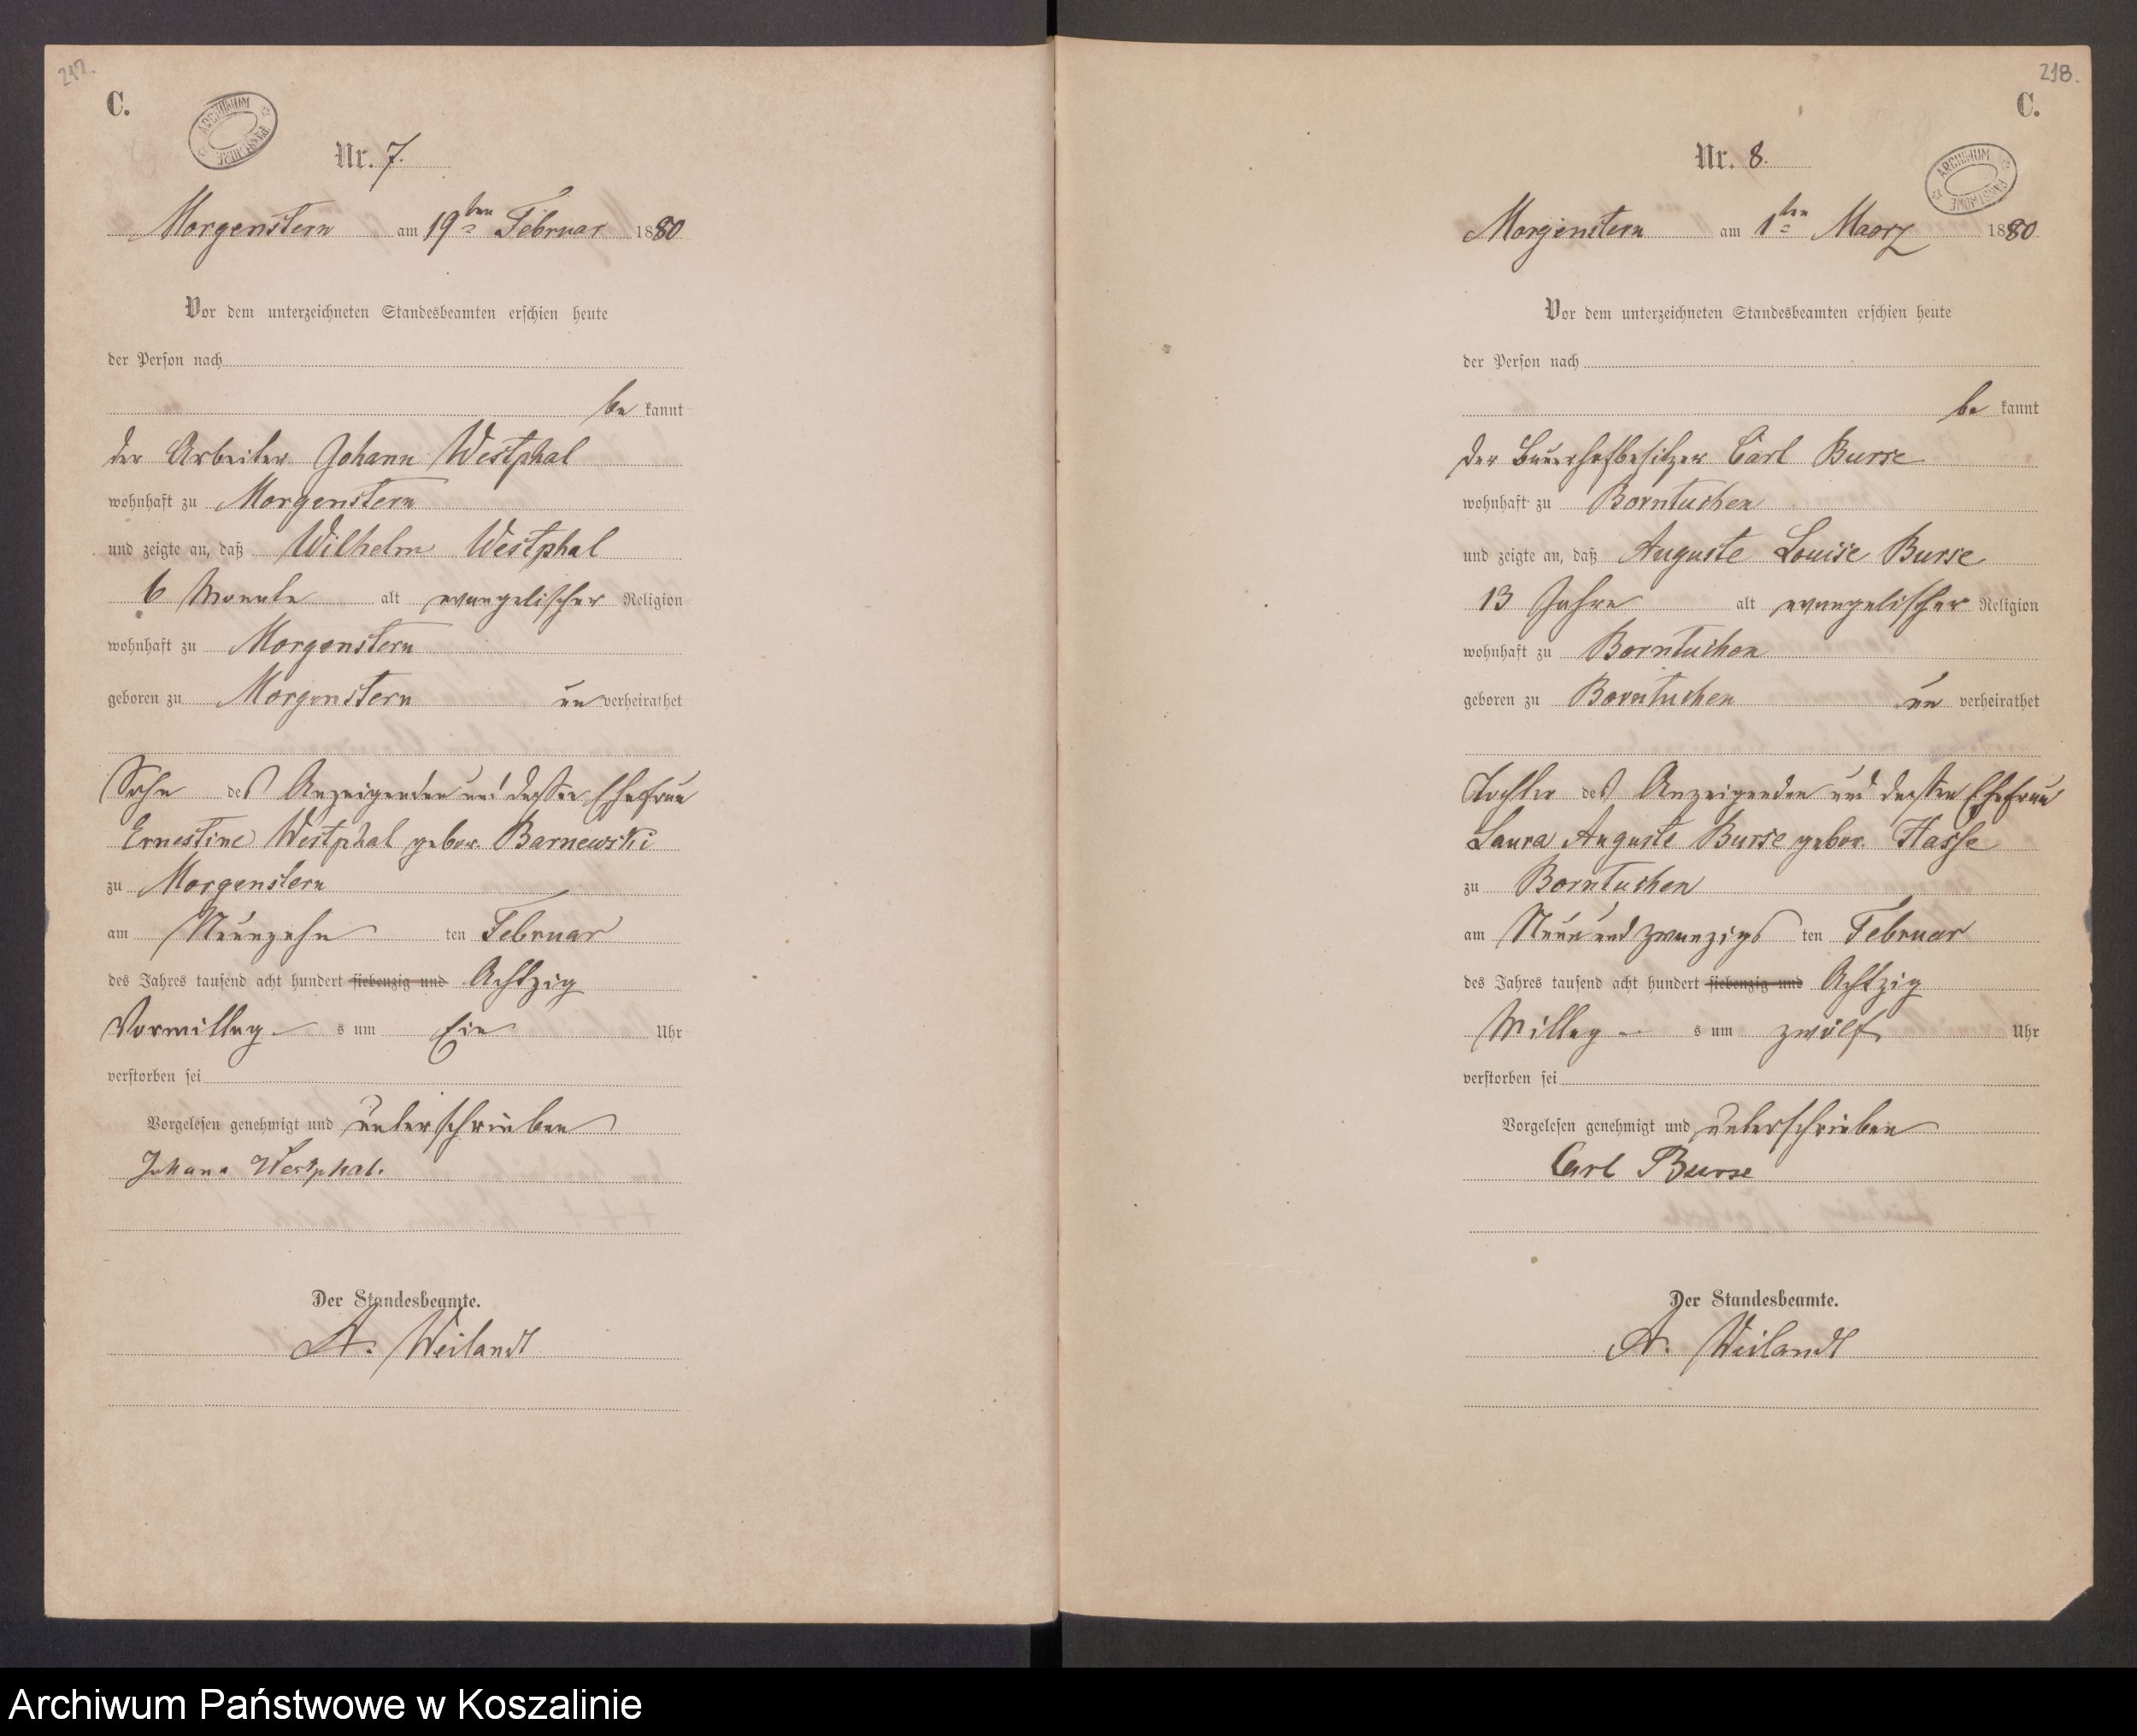 217.
C.
ARCHIWUM PAŃSTWOWE
Nr. 7.
Morgenstern am 19ten Februar 1880
Vor dem unterzeichneten Standesbeamten erschien heute
der Person nach
be kannt
der Arbeiter Johann Westphal
wohnhaft zu Morgenstern
und zeigte an, daß Wilhelm Westphal
6 Monate alt evangelischer Religion
wohnhaft zu Morgenstern
geboren zu Morgenstern un verheirathet
Sohn des Anzeigenden und dessen Ehefrau
Ernestine Westphal gebor. Barnewski
zu Morgenstern
am Neunzehn ten Februar
des Jahres tausend acht hundert siebenzig und Achtzig
Vormittag s um Ein Uhr
verstorben sei
Vorgelesen genehmigt und unterschrieben
Johann Westphal.
Der Standesbeamte.
A. Weilandt
218.
C.
ARCHIWUM PAŃSTWOWE
Nr. 8.
Morgenstern am 1ten Maerz 1880
Vor dem unterzeichneten Standesbeamten erschien heute
der Person nach
be kannt
der Bauerhofbesitzer Carl Burse
wohnhaft zu Borntuchen
und zeigte an, daß Auguste Louise Burse
13 Jahre alt evangelischer Religion
wohnhaft zu Borntuchen
geboren zu Borntuchen un verheirathet
Tochter des Anzeigenden und dessen Ehefrau
Laura Auguste Burse gebor. Hasse
zu Borntuchen
am Neun und zwanzigs ten Februar
des Jahres tausend acht hundert siebenzig und Achtzig
Mittag s um zwölf Uhr
verstorben sei
Vorgelesen genehmigt und unterschrieben
Carl Burse
Der Standesbeamte.
A. Weilandt
Archiwum Państwowe w Koszalinie